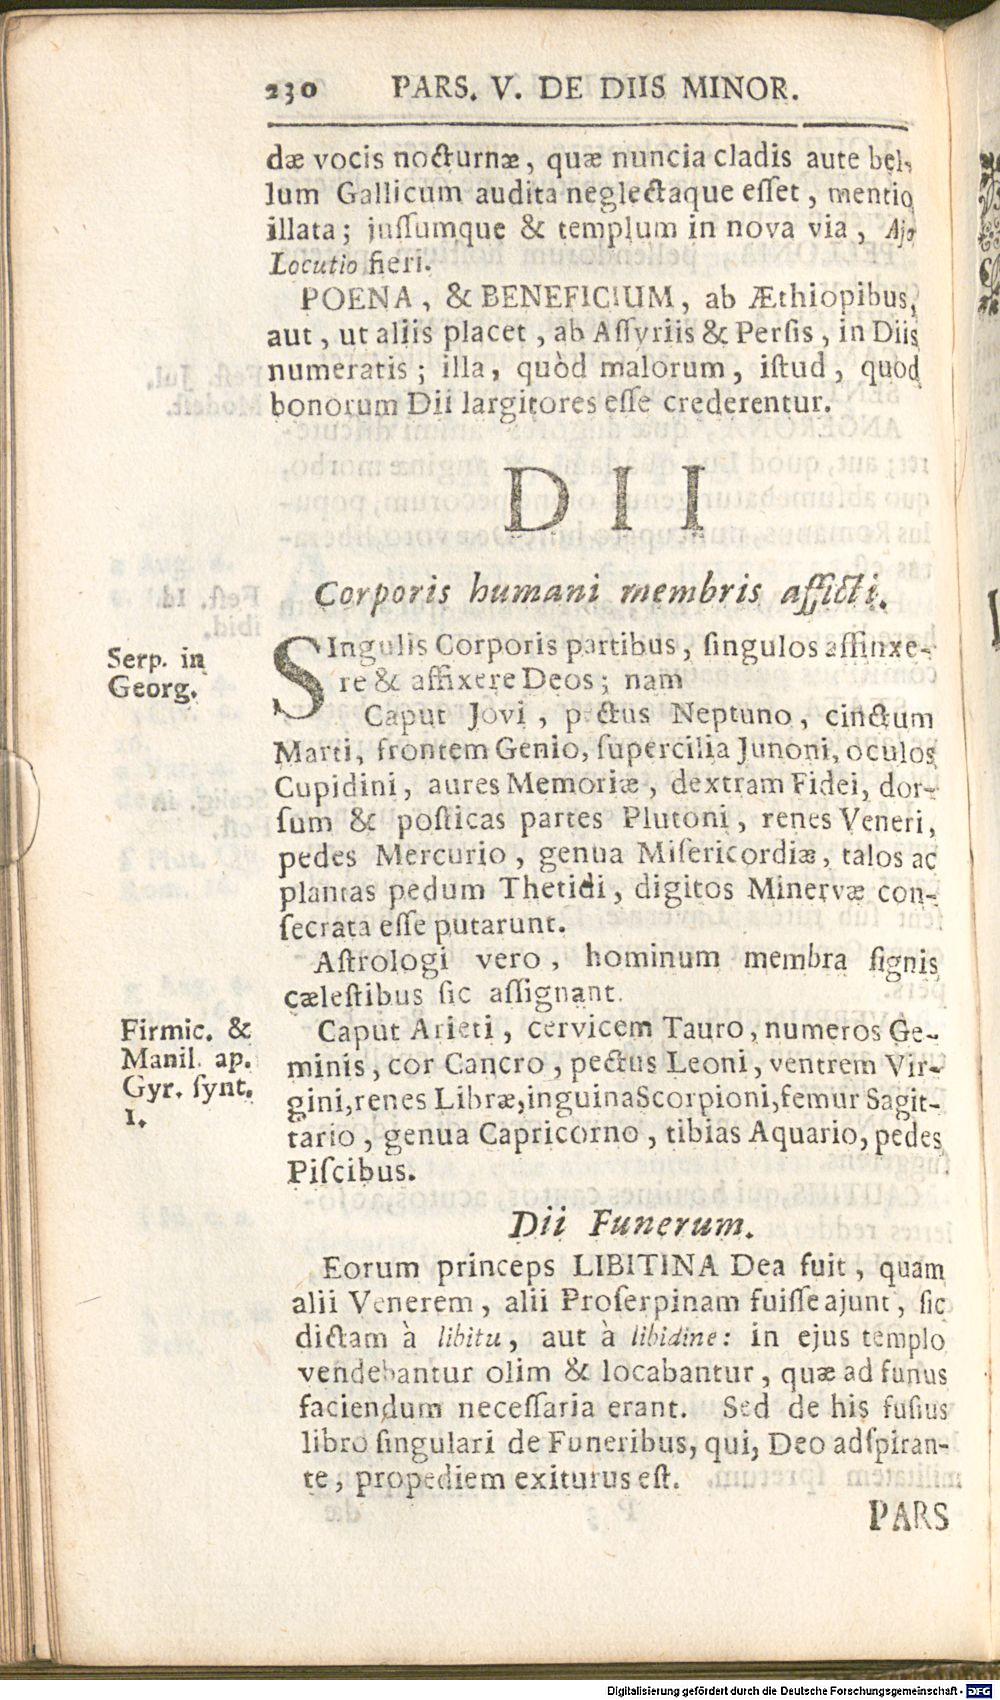 230 PARS. V. DE DIIS MINOR.
dæ vocis nocturnæ, quæ nuncia cladis aute bel-
lum Gallicum audita neglectaque eſſet, mentio
illata; juſſumque & templum in nova via, Ajo
Locutio fieri.
POENA, & BENEFICIUM, ab Æthiopibus,
aut, ut aliis placet, ab Aſſyriis & Perſis, in Diis
numeratis; illa, quòd malorum, iſtud, quod
bonorum Dii largitores eſſe crederentur.
DII
Corporis humani membris afficti.
Serp. in
Georg.
SIngulis Corporis partibus, ſingulos affinxe-
re & affixere Deos; nam
Caput Jovi, pectus Neptuno, cinctum
Marti, frontem Genio, ſupercilia Junoni, oculos
Cupidini, aures Memoriæ, dextram Fidei, dor-
ſum & poſticas partes Plutoni, renes Veneri,
pedes Mercurio, genua Miſericordiæ, talos ac
plantas pedum Thetidi, digitos Minervæ con-
ſecrata eſſe putarunt.
Aſtrologi vero, hominum membra ſignis
cæleſtibus ſic aſſignant.
Firmic. &
Manil. ap.
Gyr. ſynt.
1.
Caput Arieti, cervicem Tauro, numeros Ge-
minis, cor Cancro, pectus Leoni, ventrem Vir-
gini, renes Libræ, inguina Scorpioni, femur Sagit-
tario, genua Capricorno, tibias Aquario, pedes
Piſcibus.
Dii Funerum.
Eorum princeps LIBITINA Dea fuit, quam
alii Venerem, alii Proſerpinam fuiſſe ajunt, ſic
dictam à libitu, aut à libidine: in ejus templo
vendebantur olim & locabantur, quæ ad funus
faciendum neceſſaria erant. Sed de his fuſius
libro ſingulari de Funeribus, qui, Deo adſpiran-
te, propediem exiturus eſt.
PARS
Digitalisierung gefördert durch die Deutsche Forschungsgemeinschaft - DFG